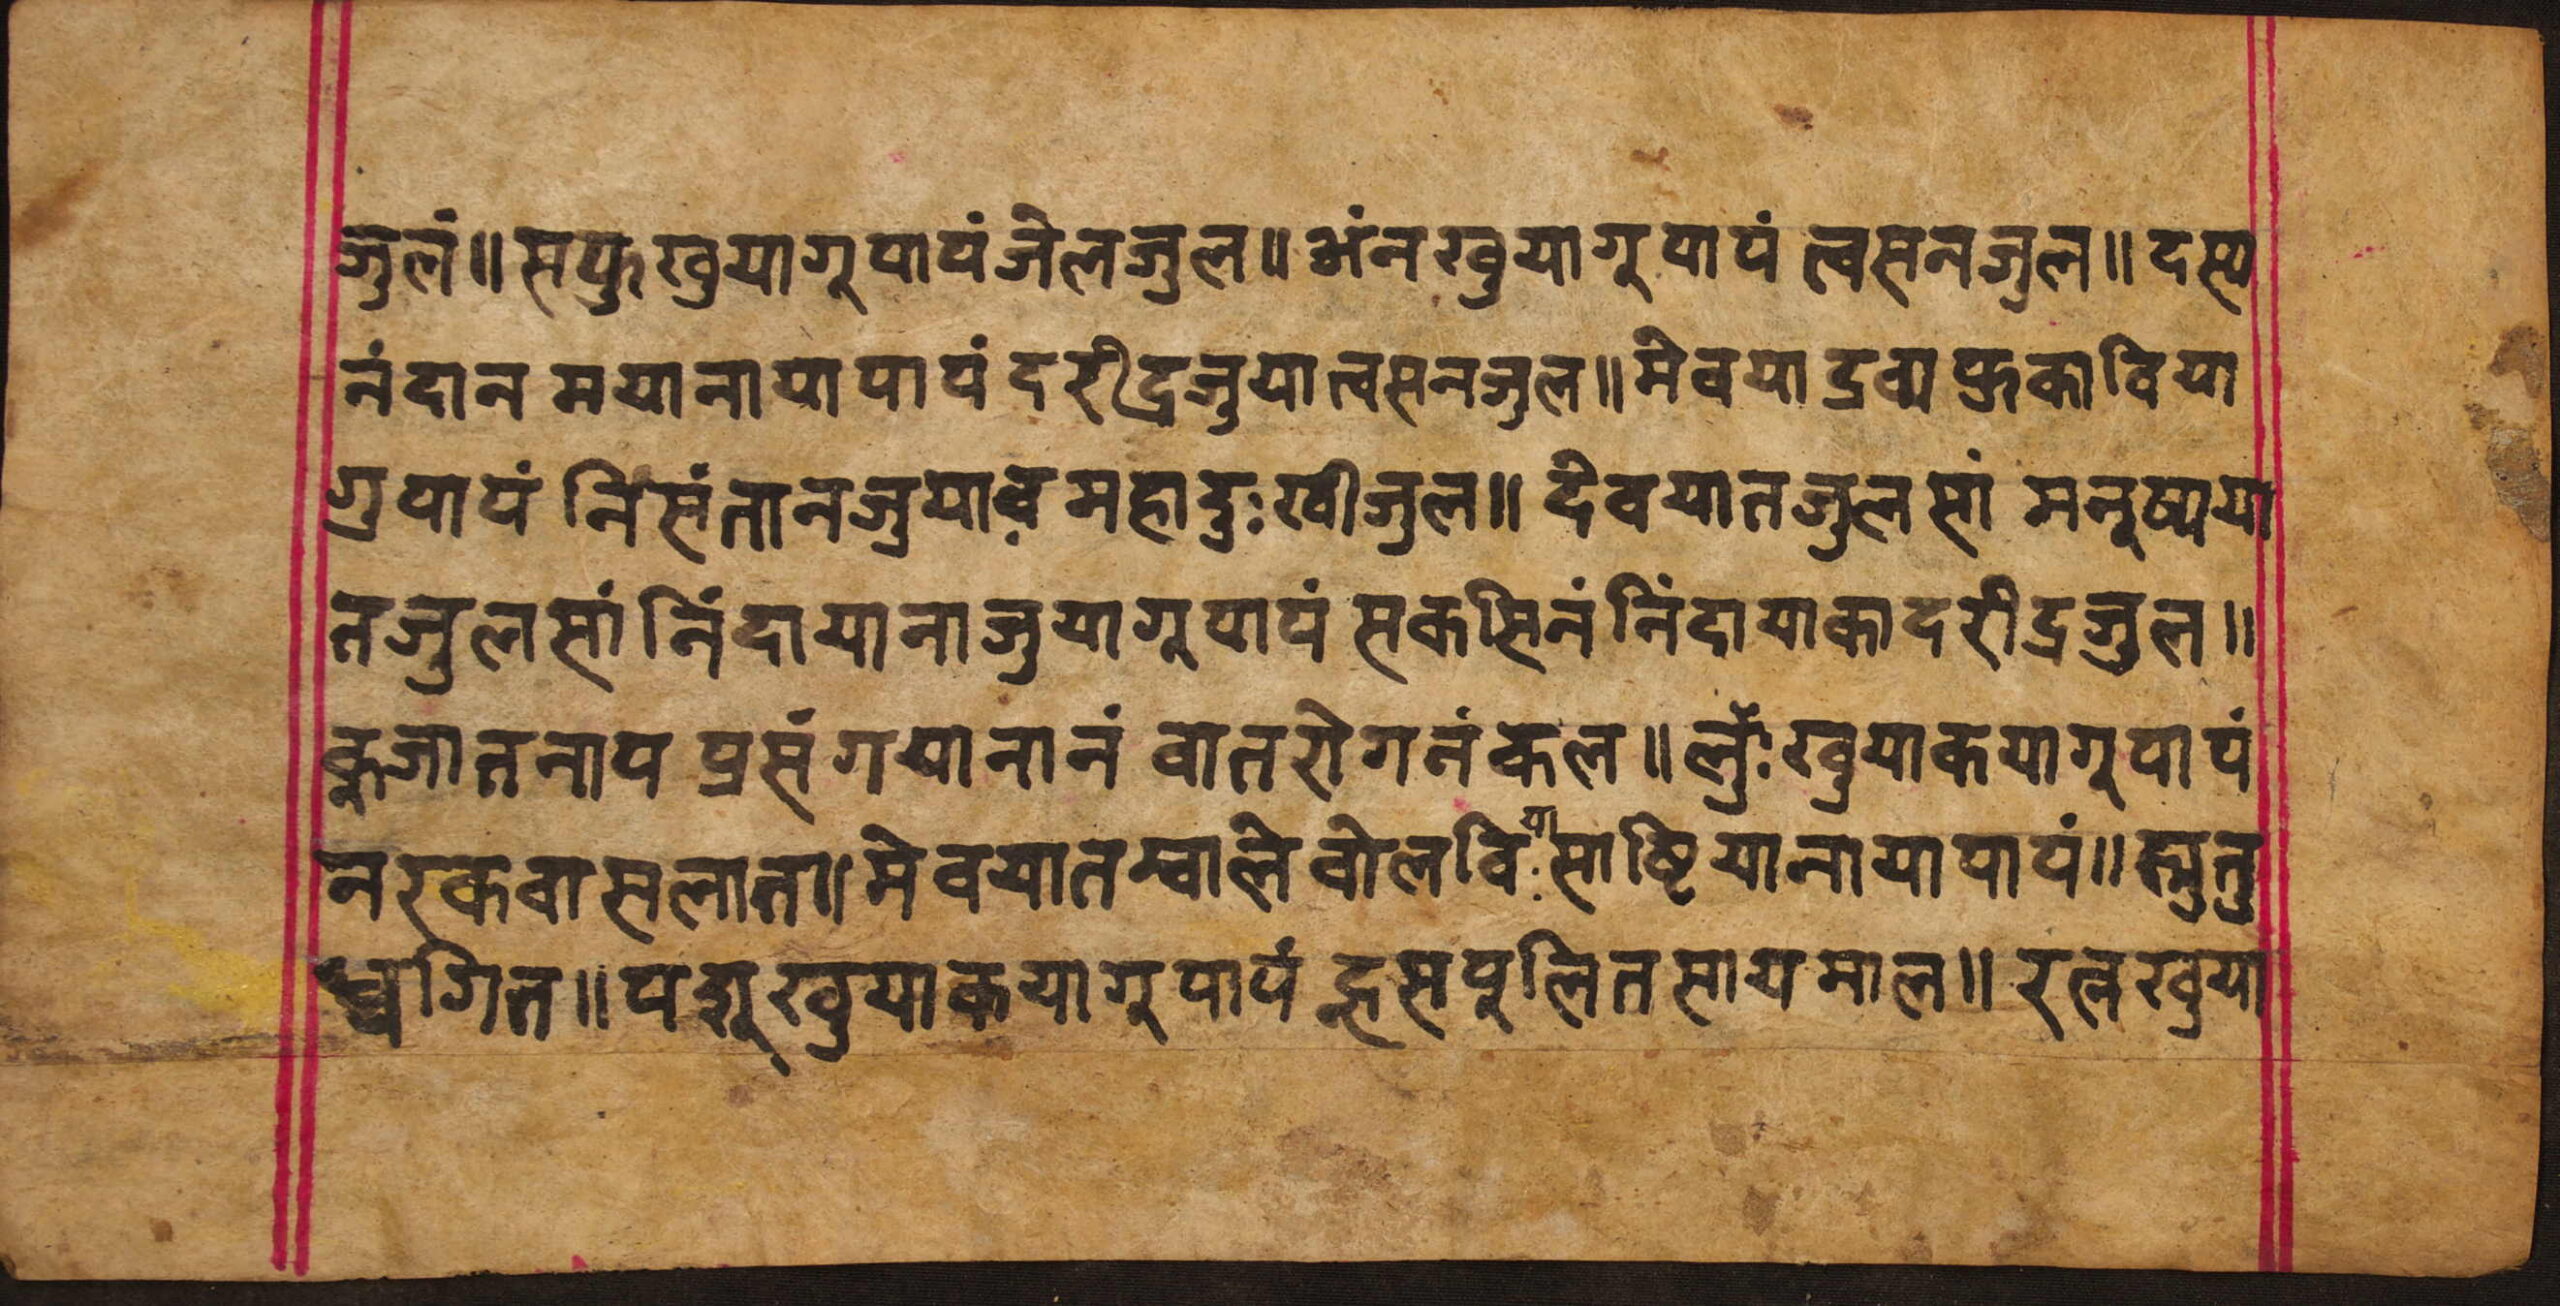 जुलं॥ सफुखुयागूपापं जेलजुल॥ अंनखुयागूपापं त्वसनजुल॥ दस्य
नं दान मयानायापापं दरीद्रजुया त्वसनजुल॥ मेवया द्रव्य फ्रकाविया
गुपापं निसंतानजुयाव महादुःखीजुल॥ देवयातजुलसां मनूष्यया
तजुलसां निंदायानाजुयागूपापं सकसिनं निंदायाका दरीद्रजुल॥
क्रूजातनाप प्रसंगयानानं वातरोगनंकल॥ लुँःखुयाकयागूपापं
नरकवासलात॥ मेवयात म्वाले वोलविया साष्टियानायापापं॥ ह्मुतु
ध्वगित॥ पञूखुयाकयागूपापं ह्लसपूलितसायमाल॥ रत्नखुया